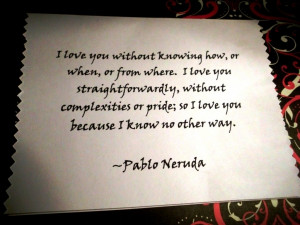 I love you without knowing how, or
when, or from where. I love you
straightforwardly, without
complexities or pride; so I love you
because I know no other way.
~Pablo Neruda